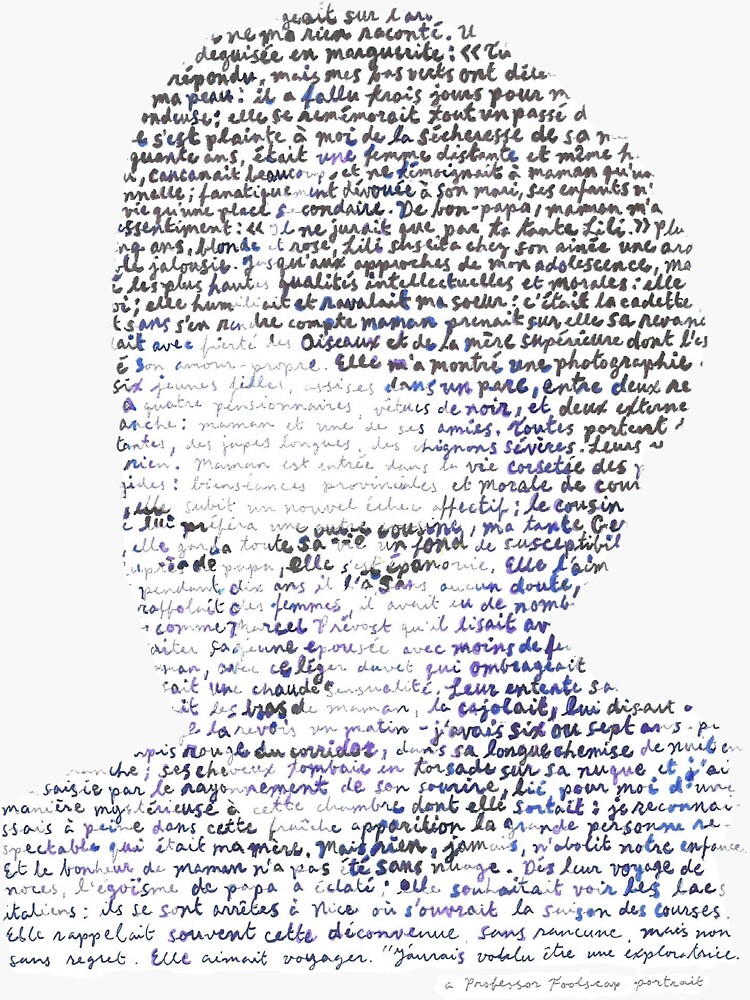 geait sur l'ar
ne m'a rien raconté. U
deguisée en marguerite: «Tu
répondu, mais mes bas verts ont déte
ma peau: il a fallu trois jours pour m
ondeuse; elle se remémorait tout un passé d
e s'est plainte à moi de la sécheresse de sa m
quante ans, était une femme distante et même h
u, cancanait beaucoup, et ne témoignait à maman qu'un
nnelle; fanatiquement dévouée à son mari, ses enfants n'
vie qu'une place secondaire. De bon-papa, maman m'a
essentiment: «Il ne jurait que par ta tante Lili.» Plu
ng ans, blonde et rose, Lili suscita chez son ainée une ard
ble jalousie. Jusqu'aux approches de mon adolescence, ma
é les plus hautes qualités intellectuelles et morales: elle
oi; elle humiliait et ravalait ma soeur: c'était la cadette
t sans s'en rendre compte maman prenait sur elle sa revanc
lait avec fierté des Oiseaux et de la mère supérieure dont l'es
é son amour-propre. Elle m'a montré une photographie
six jeunes filles, assises dans un parc, entre deux re
a quatre pensionnaires, vêtues de noir, et deux externe
anche: maman et une de ses amies. Toutes portent
tantes, des jupes longues, des chignons sévères. Leurs
rien. Maman est entrée dans la vie corsetée des p
gides: bienséances provinciales et morale de cour
elle subit un nouvel échec affectif; le cousin
e lui préféra une autre cousine, ma tante Ge
, elle garda toute sa vie un fond de susceptibil
uprès de papa, elle s'est épanouie. Elle l'aim
pendant dix ans il l'a sans aucun doute,
raffolait des femmes, il avait eu de nomb
comme Marcel Prévost qu'il lisait av
aiter sa jeune epousée avec moins de fe
man, avec ce léger duvet qui ombrageait
sait une chaude sensualité. Leur entente sa
it les bras de maman, la cajolait, lui disait d
e la revois un matin - j'avais six ou sept ans - pi
pis rouge du corridor, dans sa longue chemise de nuit en
anche; ses cheveux tombaie en torsade sur sa nuque et j'ai
saisie par le rayonnement de son sourire, lié pour moi d'une
manière mystérieuse à cette chambre dont elle sortait: je reconnai-
ssais à peine dans cette fraîche apparition la grande personne re-
spectable qui était ma mère. Mais rien, jamais, n'abolit notre enfance.
Et le bonheur de maman n'a pas été sans nuage. Dès leur voyage de
noces, l'égoïsme de papa a éclaté; elle souhaitait voir les lacs
italiens: ils se sont arrêtés à Nice où s'ouvrait la saison des courses.
Elle rappelait souvent cette déconvenue sans rancune mais non
sans regret. Elle aimait voyager. "J'aurais voulu être une exploratrice.
a Professor Foolscap portrait